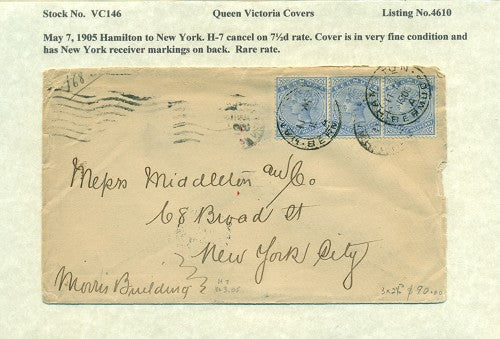 Stock No. VC146 Queen Victoria Covers Listing No.4610
May 7, 1905 Hamilton to New York. H-7 cancel on 7½d rate. Cover is in very fine condition and
has New York receiver markings on back. Rare rate.
168
HAMILTON BERMUDA
Messrs Middleton and Co.
68 Broad St
New York City
Morris Building
H7
$90.00